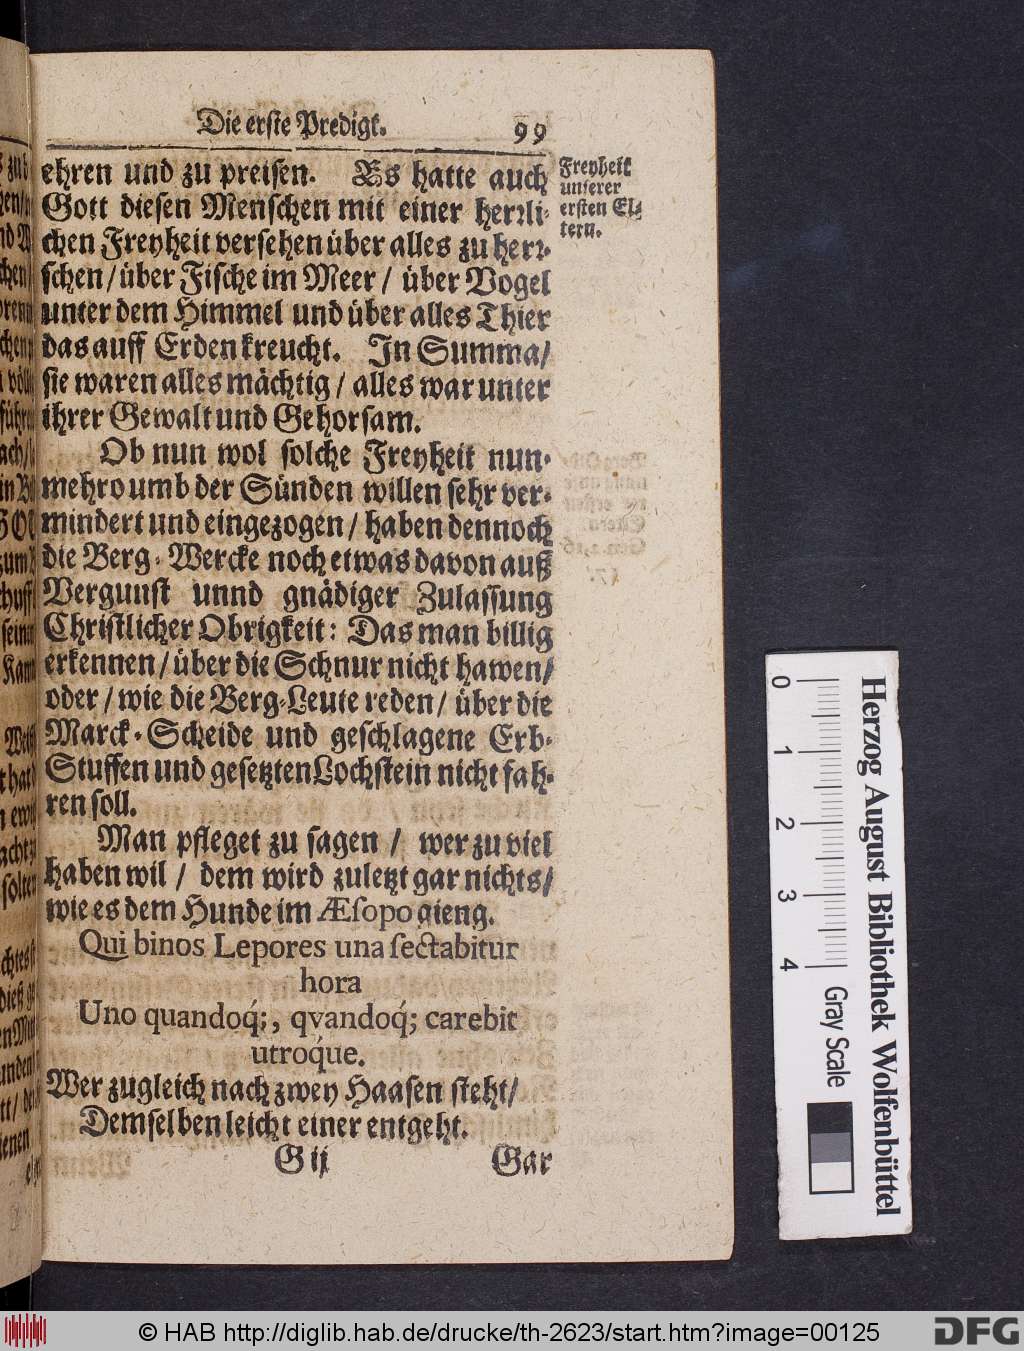 Die erste Predigt. 99
ehren und zu preisen. Es hatte auch
Gott diesen Menschen mit einer herrli-
chen Freyheit versehen über alles zu herr-
schen / über Fische im Meer / über Vogel
unter dem Himmel und über alles Thier
das auff Erden kreucht. In Summa /
sie waren alles mächtig / alles war unter
ihrer Gewalt und Gehorsam.
Freyheit
unserer
ersten El-
tern.
Ob nun wol solche Freyheit nun-
mehro umb der Sünden willen sehr ver-
mindert und eingezogen / haben dennoch
die Berg-Wercke noch etwas davon auß
Vergunst unnd gnädiger Zulassung
Christlicher Obrigkeit: Das man billig
erkennen / über die Schnur nicht hawen /
oder / wie die Berg-Leute reden / über die
Marck-Scheide und geschlagene Erb-
Stuffen und gesetzten Lochstein nicht fah-
ren soll.
Man pfleget zu sagen / wer zu viel
haben wil / dem wird zuletzt gar nichts /
wie es dem Hunde im Æsopo gieng.
Qui binos Lepores una sectabitur
hora
Uno quandoq́;, qvandoq́; carebit
utroq́ue.
Wer zugleich nach zwey Haasen steht /
Demselben leicht einer entgeht.
G ij Gar
0 1 2 3 4
Gray Scale
Herzog August Bibliothek Wolfenbüttel
© HAB http://diglib.hab.de/drucke/th-2623/start.htm?image=00125
DFG